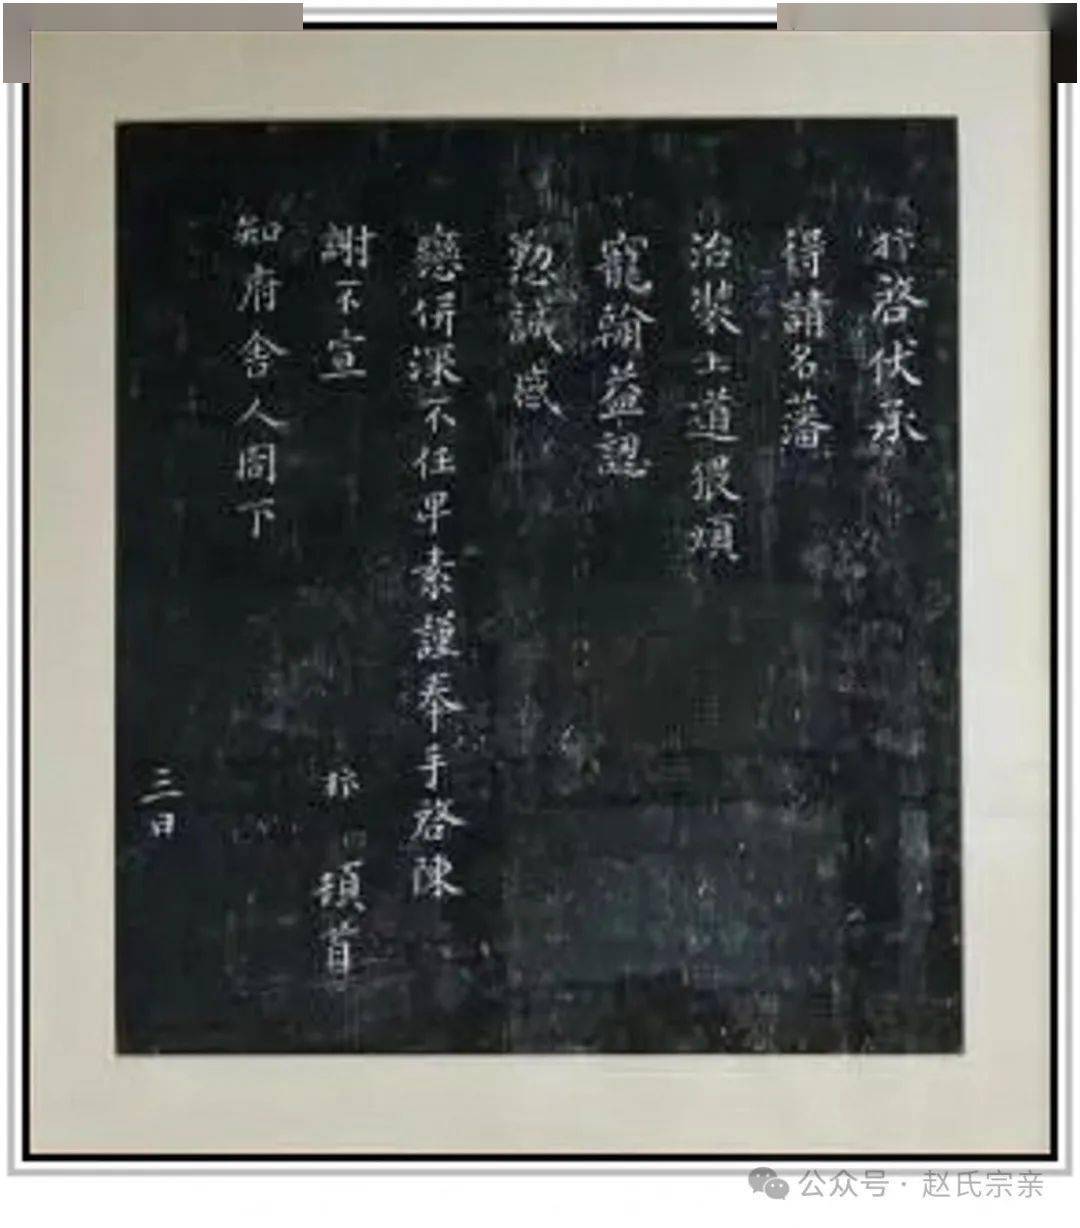 抃啓伏承
得請名藩
治裝上道猥煩
寵翰益認
懃誠感
戀併深不任卑素謹奉手啓陳
謝不宣 抃 頓首
知府舍人閤下
三日
公众号 · 赵氏宗亲